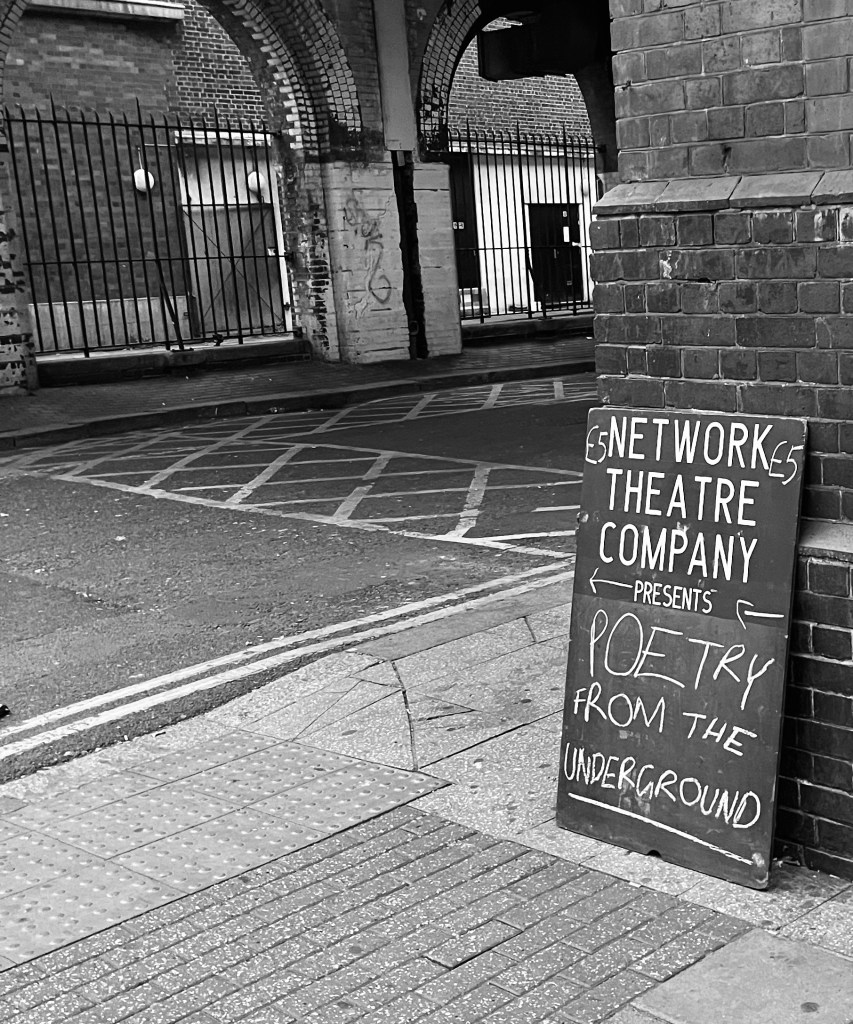 £5 NETWORK £5
THEATRE
COMPANY
← PRESENTS ←
POETRY
FROM THE
UNDERGROUND